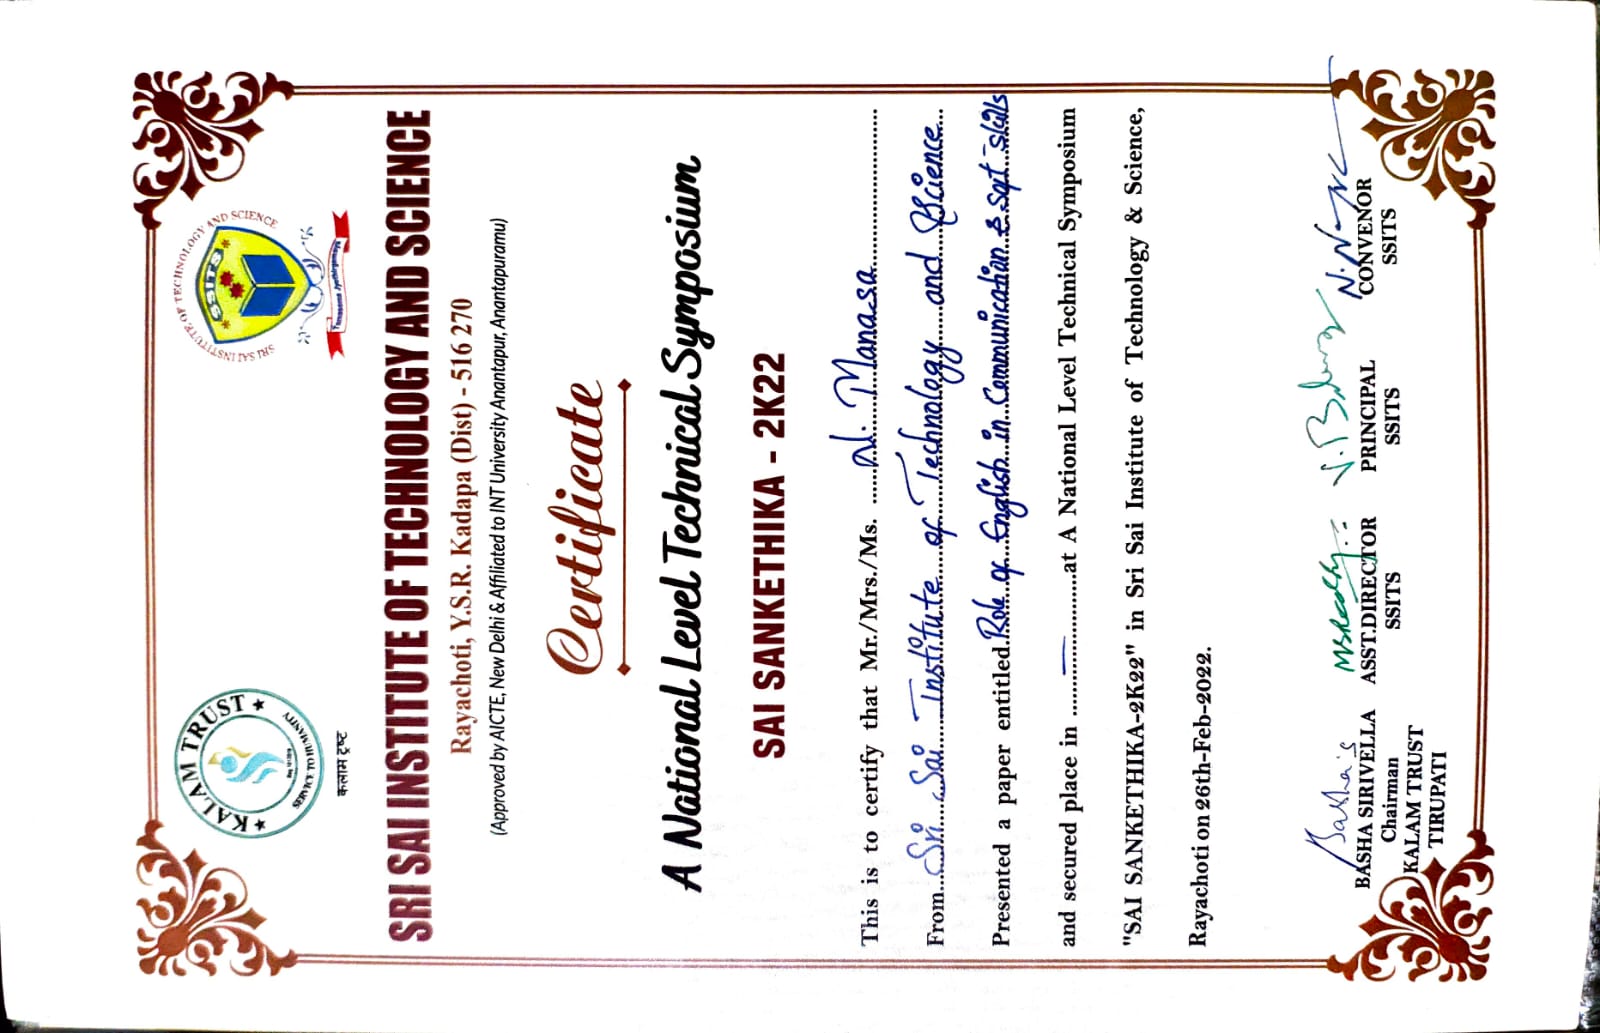 KALAM TRUST
SERVICE TO HUMANITY
कलाम ट्रस्ट
SRI SAI INSTITUTE OF TECHNOLOGY AND SCIENCE
SSITS
Tamasoma Jyothirgamaya
SRI SAI INSTITUTE OF TECHNOLOGY AND SCIENCE
Rayachoti, Y.S.R. Kadapa (Dist) - 516 270
(Approved by AICTE, New Delhi & Affiliated to JNT University Anantapur, Anantapuramu)
Certificate
A National Level Technical Symposium
SAI SANKETHIKA - 2K22
This is to certify that Mr./Mrs./Ms. N. Manasa
From Sri Sai Institute of Technology and Science
Presented a paper entitled Role of English in Communication & Soft-skills
and secured place in — at A National Level Technical Symposium
"SAI SANKETHIKA-2K22" in Sri Sai Institute of Technology & Science,
Rayachoti on 26th-Feb-2022.
BASHA SIRIVELLA
Chairman
KALAM TRUST
TIRUPATI
ASST.DIRECTOR
SSITS
PRINCIPAL
SSITS
CONVENOR
SSITS